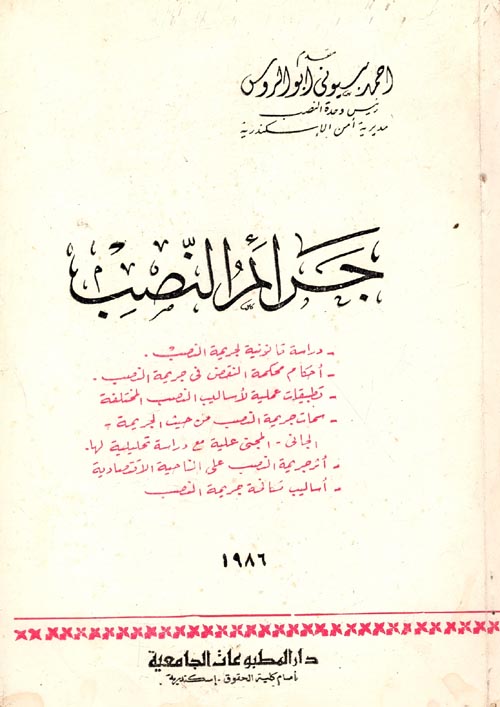 مقدم
احمد بسيونى أبوالروس
رئيس وحدة النصب
مديرية أمن الإسكندرية
جَرائمُ النّصبِ
- دراسة قانونية لجريمة النصب .
- أحكام محكمة النقض فى جريمة النصب .
- تطبيقات عملية لأساليب النصب المختلفة
- سمات جريمة النصب من حيث الجريمة -
الجانى - المجنى علية مع دراسة تحليلية لها .
- أثر جريمة النصب على الناحية الاقتصادية
- أساليب مكافحة جريمة النصب
١٩٨٦
دار المطبوعات الجامعية
أمام كلية الحقوق - إسكندرية